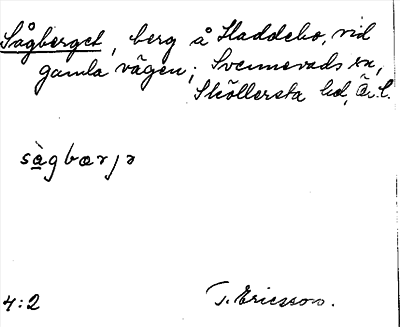 Sågberget, berg å Haddebo, vid
gamla vägen; Svennevads sn,
Sköllersta hd, Ör. l.
sàgbærjə
4:2 T. Ericsson.